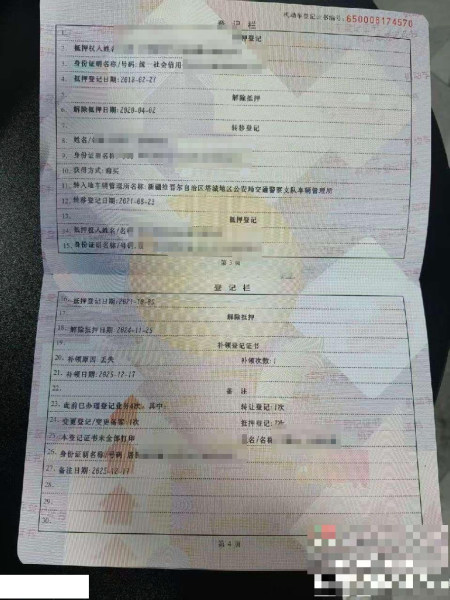 登记栏
机动车登记证书编号:650008174576
1.
2. 抵押登记
抵押权人姓名
3. 身份证明名称/号码:统一社会信用
4. 抵押登记日期:2018-02-27
5. 解除抵押
6. 解除抵押日期:2020-04-02
7. 转移登记
8. 姓名/
9. 身份证明名称
10. 获得方式:购买
11. 转入地车辆管理所名称:新疆维吾尔自治区塔城地区公安局交通警察支队车辆管理所
12. 转移登记日期:2021-08-23
13. 抵押登记
14. 抵押权人姓名/名称
15. 身份证明名称/号码
第3页
登记栏
16. 抵押登记日期:2021-10-
17. 解除抵押
18. 解除抵押日期:2024-11-25
19. 补领登记证书
20. 补领原因:丢失 补领次数:1
21. 补领日期:2025-12-17
22. 备注
23. 此前已办理登记业务4次,其中: 转让登记:1次
24. 变更登记/变更备案:1次 抵押登记:2次
25. 本登记证书未全部打印 姓名/名称
26. 身份证明名称/号码:居
27. 备注日期:2025-12-17
28.
29.
30.
第4页